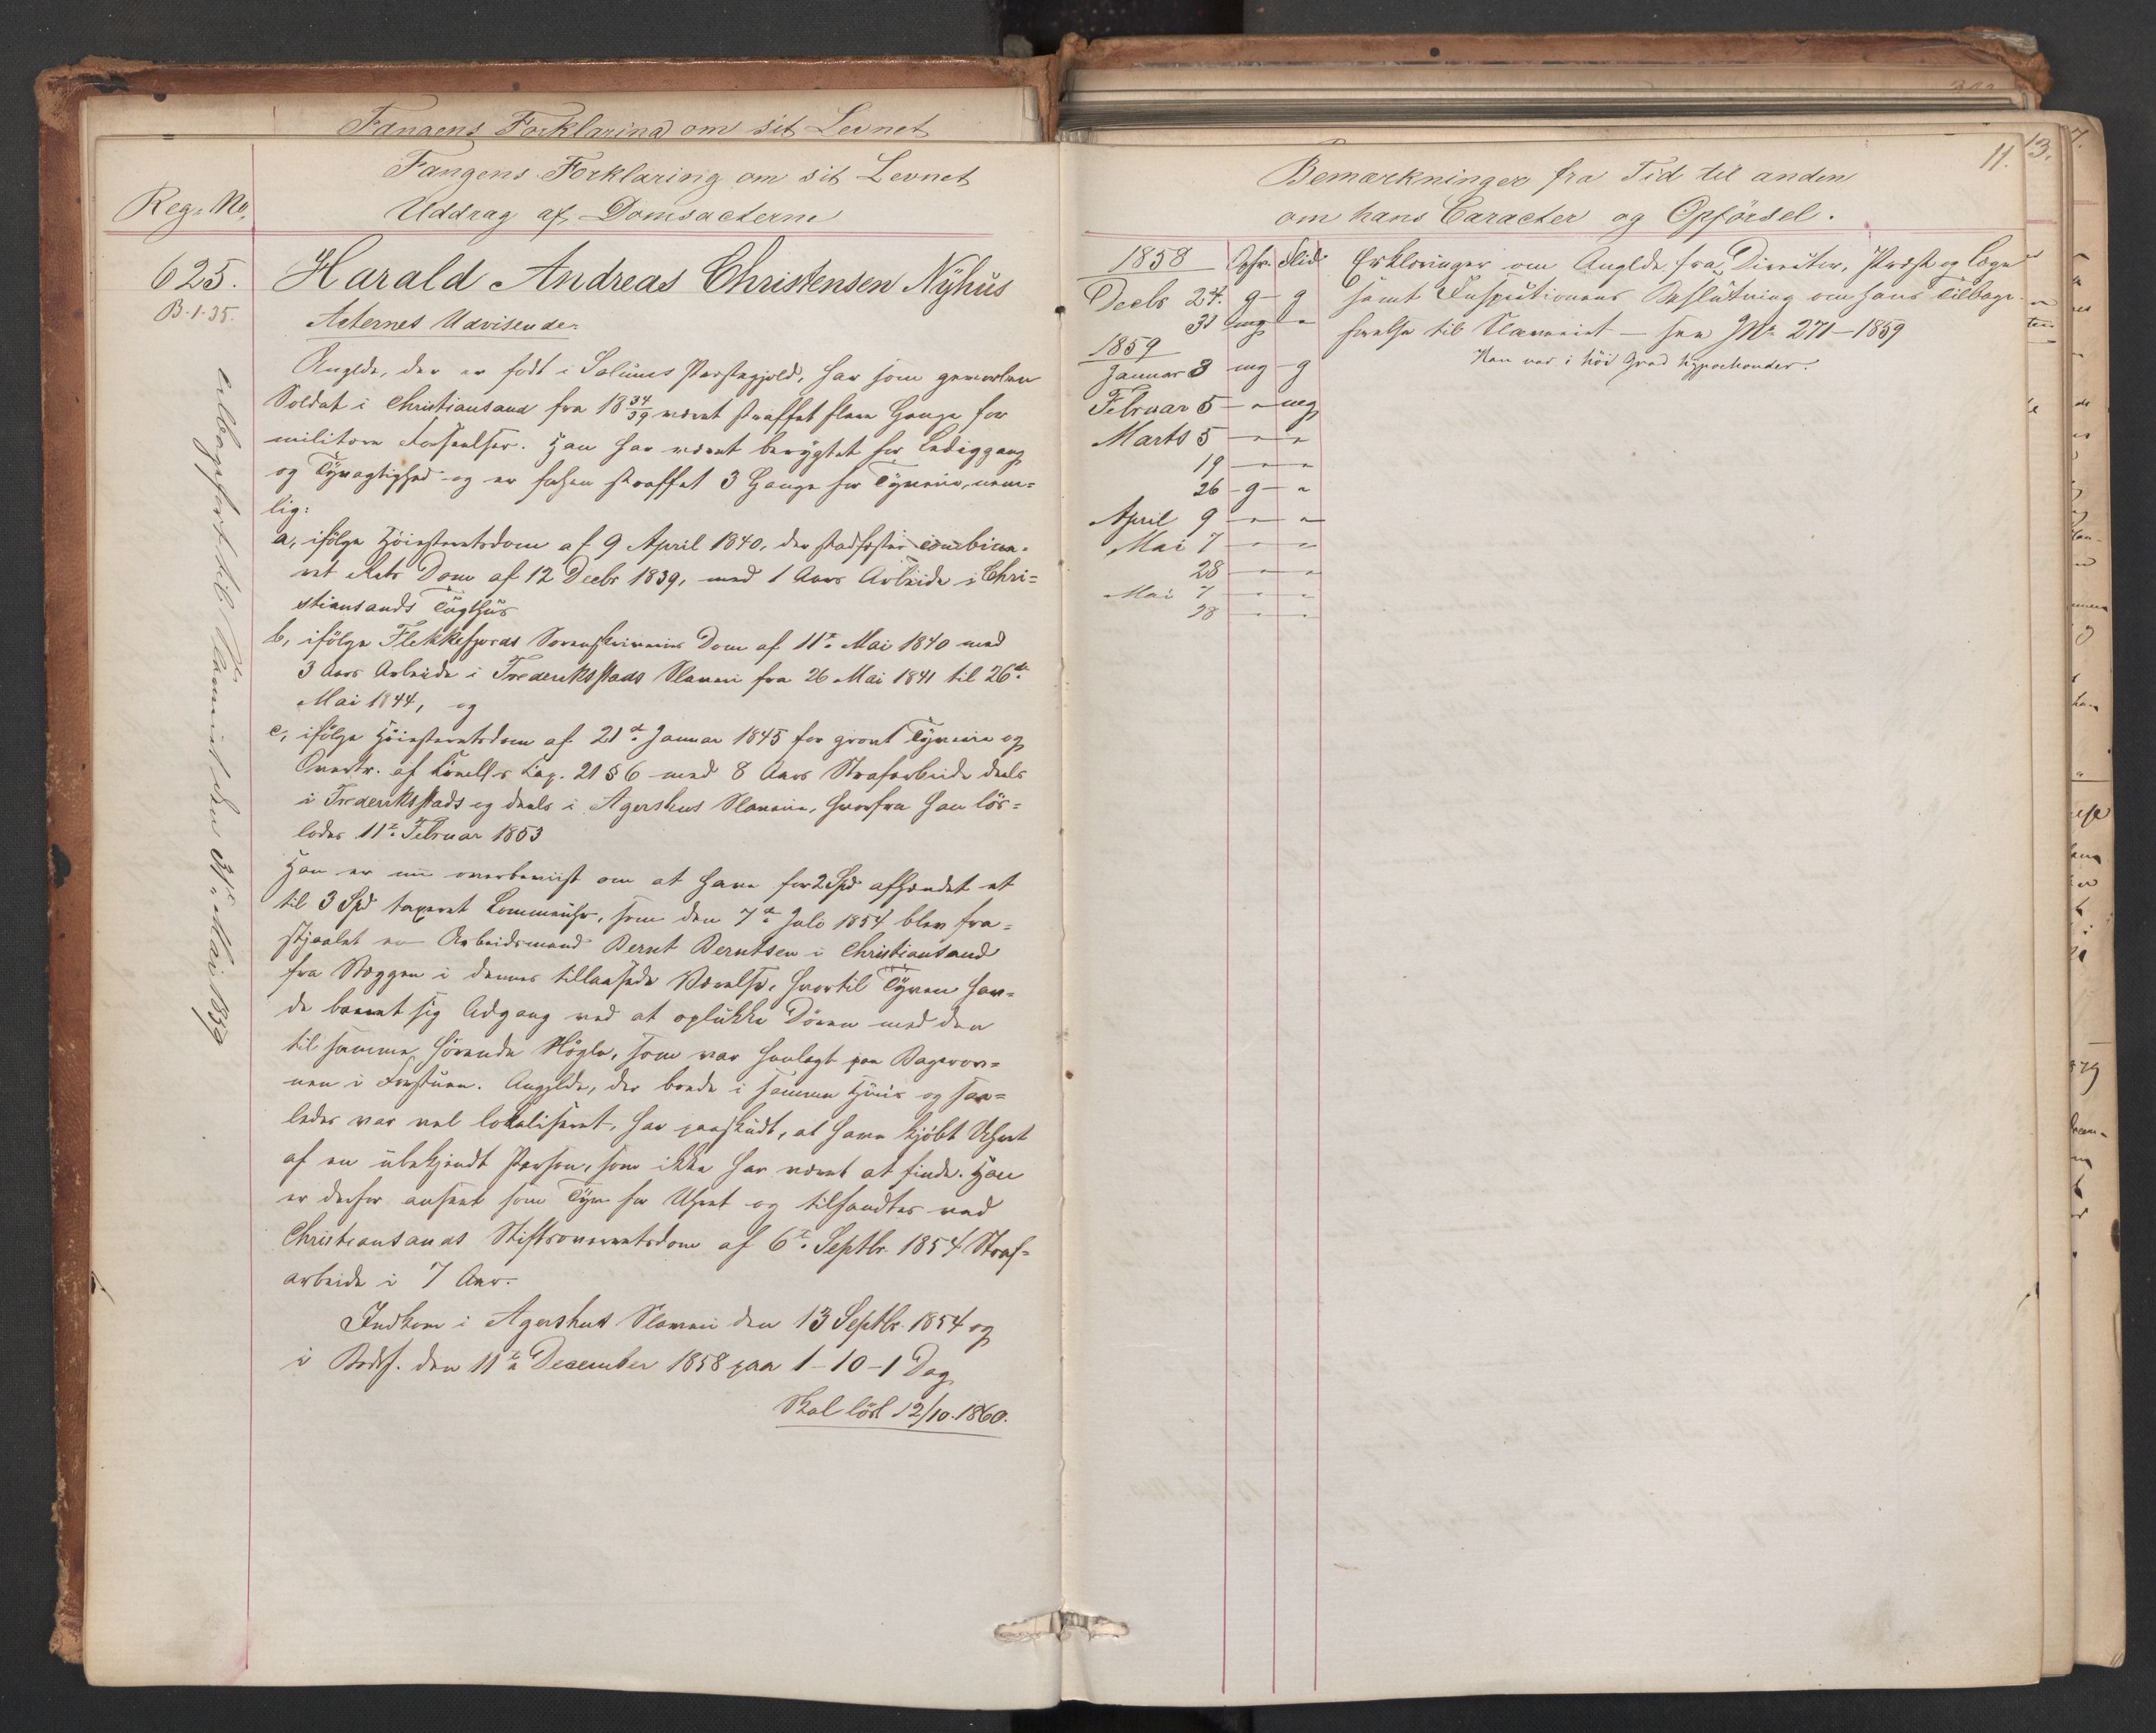 Fangens Forklaring om sit Levnet
Fangens Forklaring om sit Levnet
Reg. No.
Uddrag af Domsacterne
625.
B.1.35.
Harald Andreas Christensen Nÿhus
Acternes Udvisende.
Angldе, der er født i Solums Præstegjeld, har som geworben
Soldat i Christiansand fra 18 34/39 været straffet flere Gange for
militære Forseelser. Han har været berygtet for Lediggang
og Tyvagtighed og er siden straffet 3 Gange for Tyverie, nem=
lig:
a, ifölge Höiesteretsdom af 9 April 1840, der stadfæster combine=
ret Rets Dom af 12 Decbr 1839, med 1 Aars Arbeide i Chri=
stiansands Tugthus
b, ifölge Flekkefjords Sorenskriveries Dom af 11te Mai 1840 med
3 Aars Arbeide i Frederiksstads Slaveri fra 26 Mai 1841 til 26de
Mai 1844, og
c, ifölge Höiesteretsdom af 21de Januar 1845 for grovt Tyverie og
Overtr. af Crimll. Cap. 21 § 6 med 8 Aars Strafarbeide deels
i Frederiksstads og deels i Agershus Slaverie, hvorfra han lös=
lodes 11te Februar 1853
Han er nu overbeviist om at have for 2 Spd afhændet et
til 3 Spd taxeret Lommeuhr, som den 7de Juli 1854 blev fra=
stjaalet en Arbeidsmand Bernt Berntsen i Christiansand
fra Væggen i dennes tillaasede Værelse, hvortil Tyven hav=
de banet sig Adgang ved at oplukke Dören med den
til samme hörende Nögle, som var henlagt paa Bagerov=
nen i Forstuen. Anglde, der boede i samme Huus og saa=
ledes var vel lokaliseret, har paaskudt, at have kjöbt Uhret
af en ubekjendt Person, som ikke har været at finde. Han
er derfor anseet som Tyv for Uhret og tilfandtes ved
Christiansands Stiftsoverretsdom af 6te Septbr. 1854 Straf=
arbeide i 7 Aar.
Indkom i Agershus Slaveri den 13 Septbr. 1854 og
i Bodsf. den 11te December 1858 paa 1-10-1 Dag
Skal lösl 12/10.1860.
tilbagefört til Slaveriet den 31te Mai 1859
11.
13.
Bemærkninger fra Tid til anden
om hans Caracter og Opförsel.
1858 Opfr. Flid
Decbr 24. g - g
31 mg "
1859
Januar 3 mg - g
Februar 5 - " - mg
Marts 5 - " - "
19 - " - "
26 - g - "
April 9 - " - "
Mai 7 - " - "
28 - " - "
Mai 7 - " - "
28 - " - "
Erklæringer om Anglde fra Directør, Præst og Læge
samt Inspectionens Beslutning om hans Tilbage=
førelse til Slaveriet - see No 271-1859
Han var i höi Grad hypochonder.